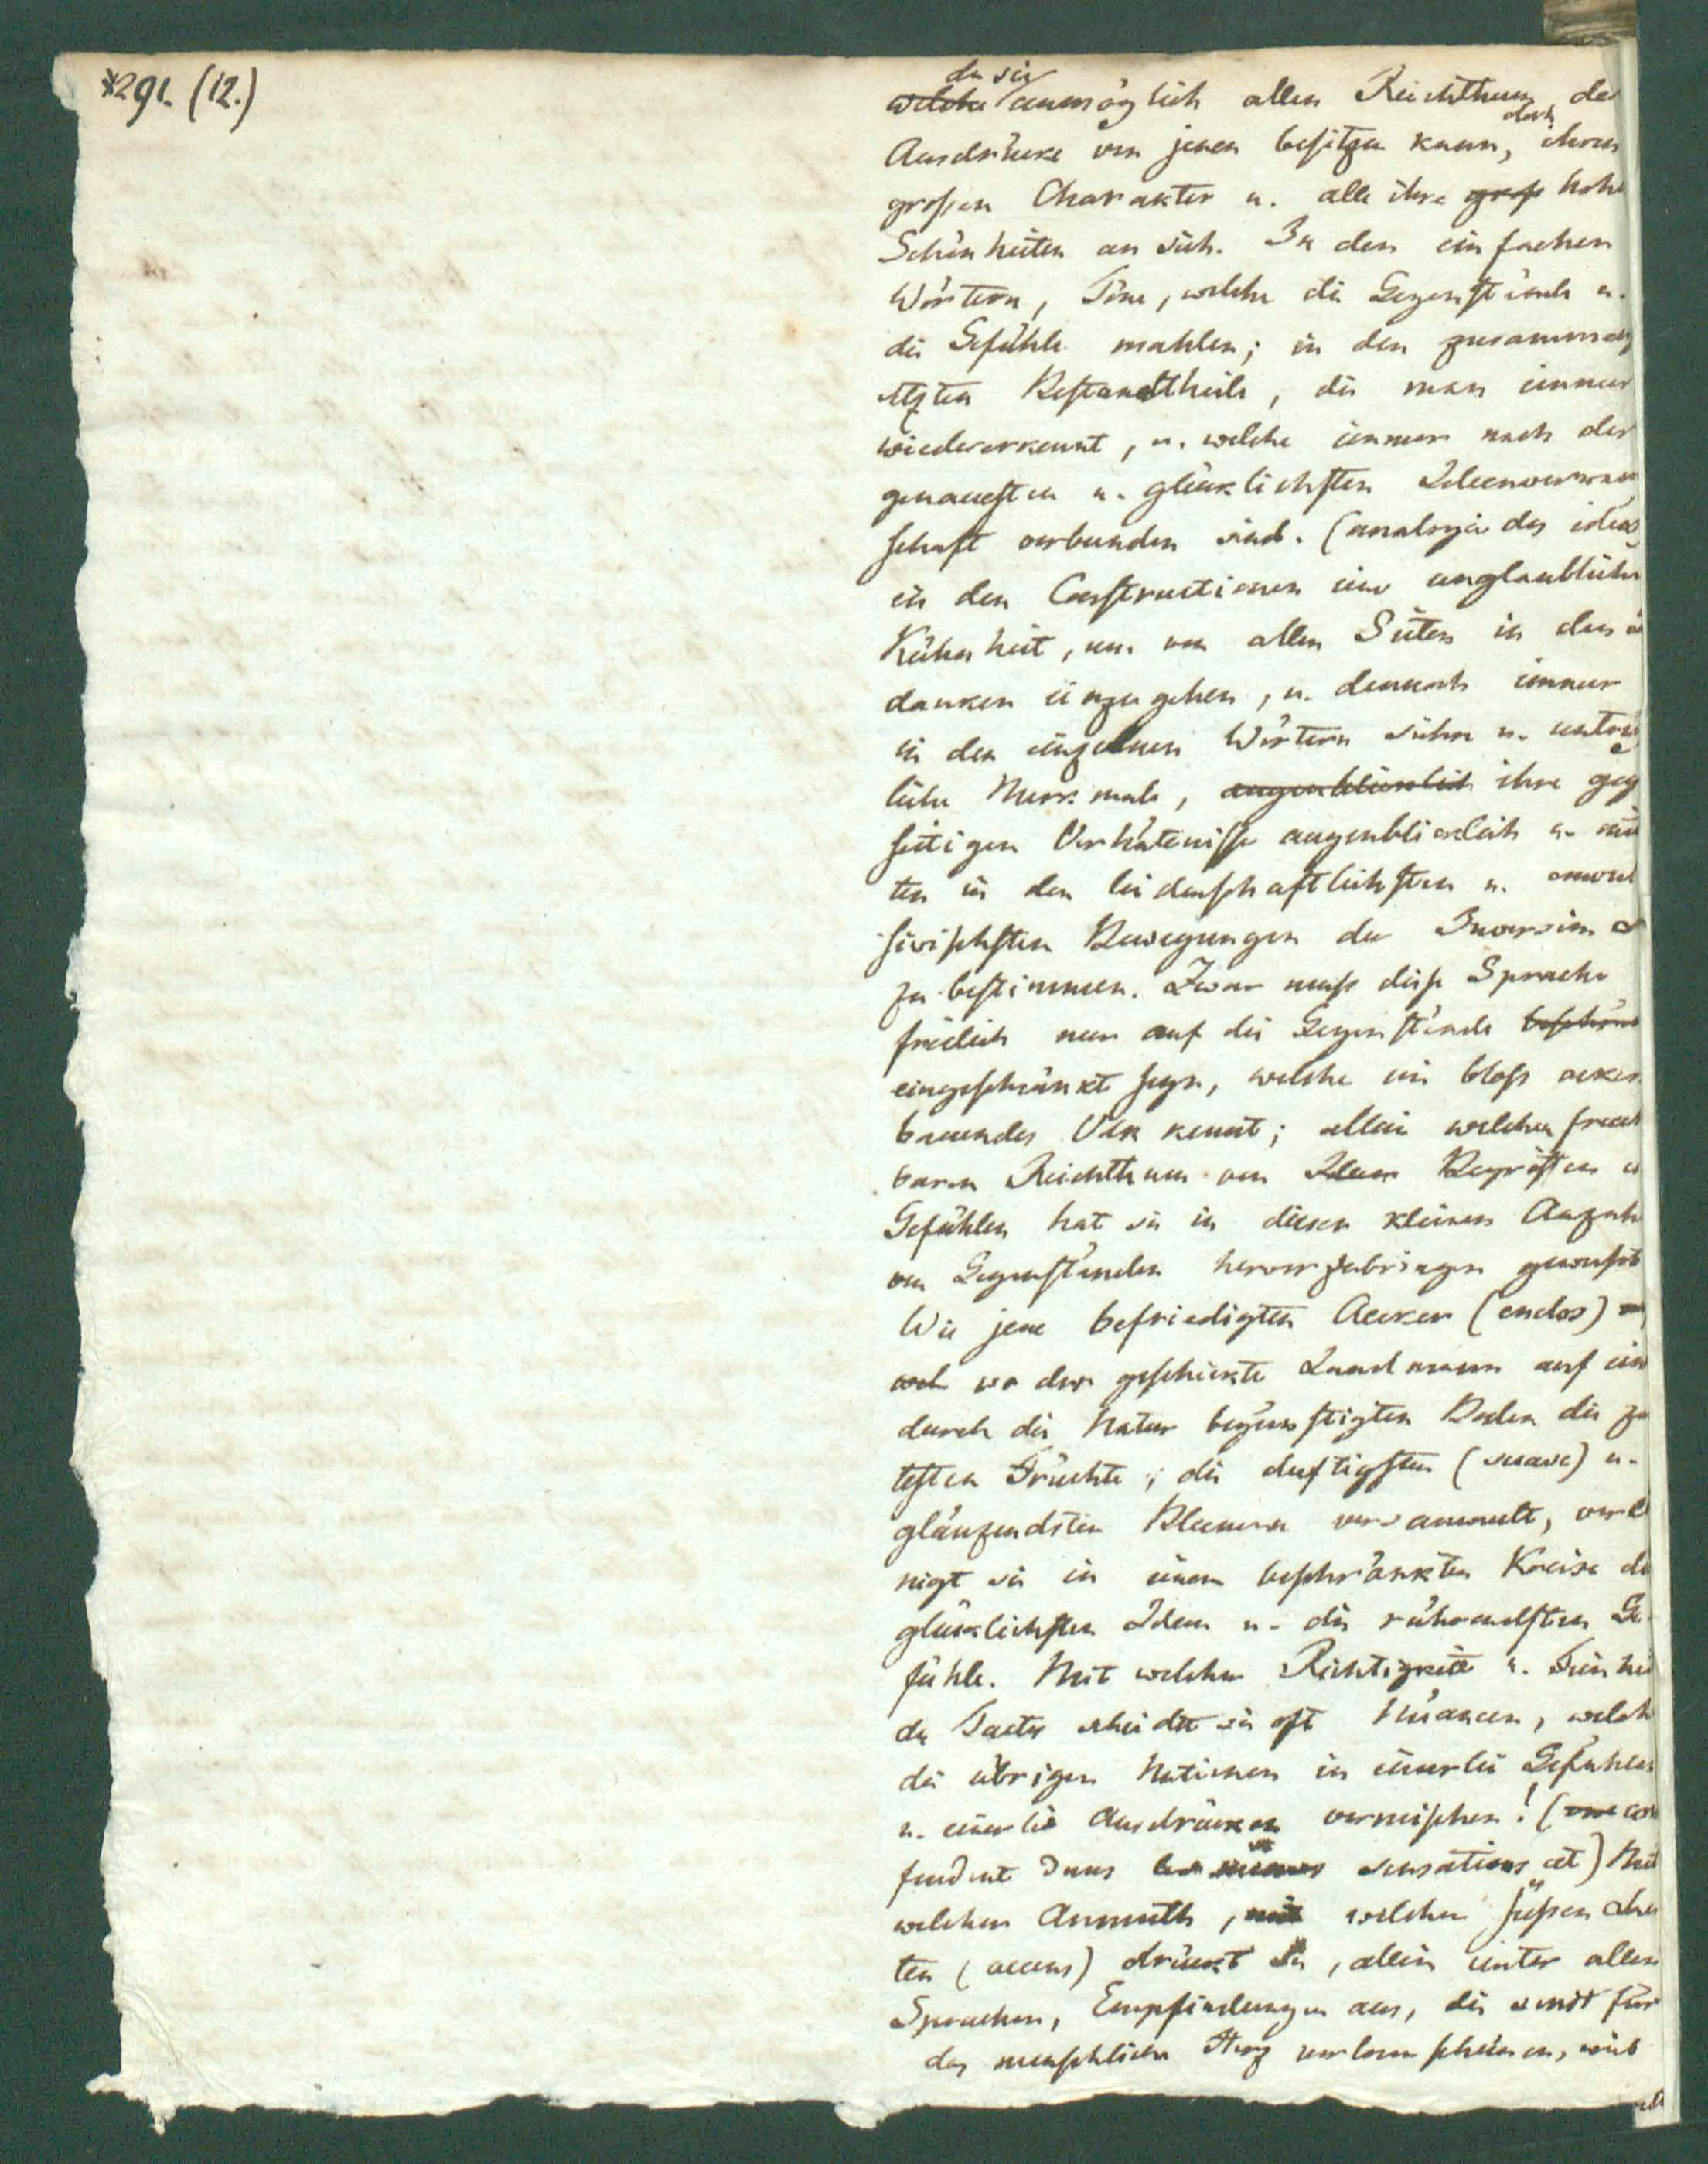 *291. (12.)
da sie
welche unmöglich allen Reichthum der
doch
Ausdrücke von jenen besitzen kann, ihren
großen Charakter u. alle ihre groß hohe
Schönheiten an sich. In den einfachen
Wörtern, Töne, welche die Gegenstände u.
die Gefühle mahlen; in den zusammeng
etzten Bestandtheile, die man immer
wiedererkennt, u. welche immer nach der
genauesten u. glücklichsten Ideenverwan
schaft verbunden sind. (analogie des idées
in den Constructionen eine unglaubliche
Kühnheit, um von allen Seiten in den
danken einzugehen, u. dennoch immer
in den einzelnen Wörtern sichre u. untrüg
liche Merkmale, augenblicklich ihre geg
seitigen Verhältnisse augenblicklich u. mit
ten in den leidenschaftlichsten u. convul
sivischsten Bewegungen der Inversion
zu bestimmen. Zwar muß diese Sprache
freilich nur auf die Gegenstände beschränk
eingeschränkt seyn, welche ein bloß acker
bauendes Volk kennt; allein welchen frucht
baren Reichthum von Ideen Begriffen u
Gefühlen hat sie in dieser kleinen Anzahl
von Gegenständen hervorzubringen gewußt
Wie jene befriedigten Aecker (enclos)
wo der geschickte Landmann auf ein
durch die Natur begünstigten Boden die za
testen Früchte, die duftigsten (suave) u.
glänzendsten Blumen versammelt, verei
nigt sie in einem beschränkten Kreise die
glücklichsten Ideen u. die rührendsten Ge
fühle. Mit welcher Richtigkeit u. Feinhei
des Tactes scheidet sie oft Nüancen, welche
die übrigen Nationen in einerlei Gefühlen
u. einerlei Ausdrücken vermischen! (con
fondent dans sensations et) Mit
welcher Anmuth, mit welchen süßen Accen
ten (accens) drückt sie, allein unter allen
Sprachen, Empfindungen aus, die sonst für
das menschliche Herz verloren scheinen, weil